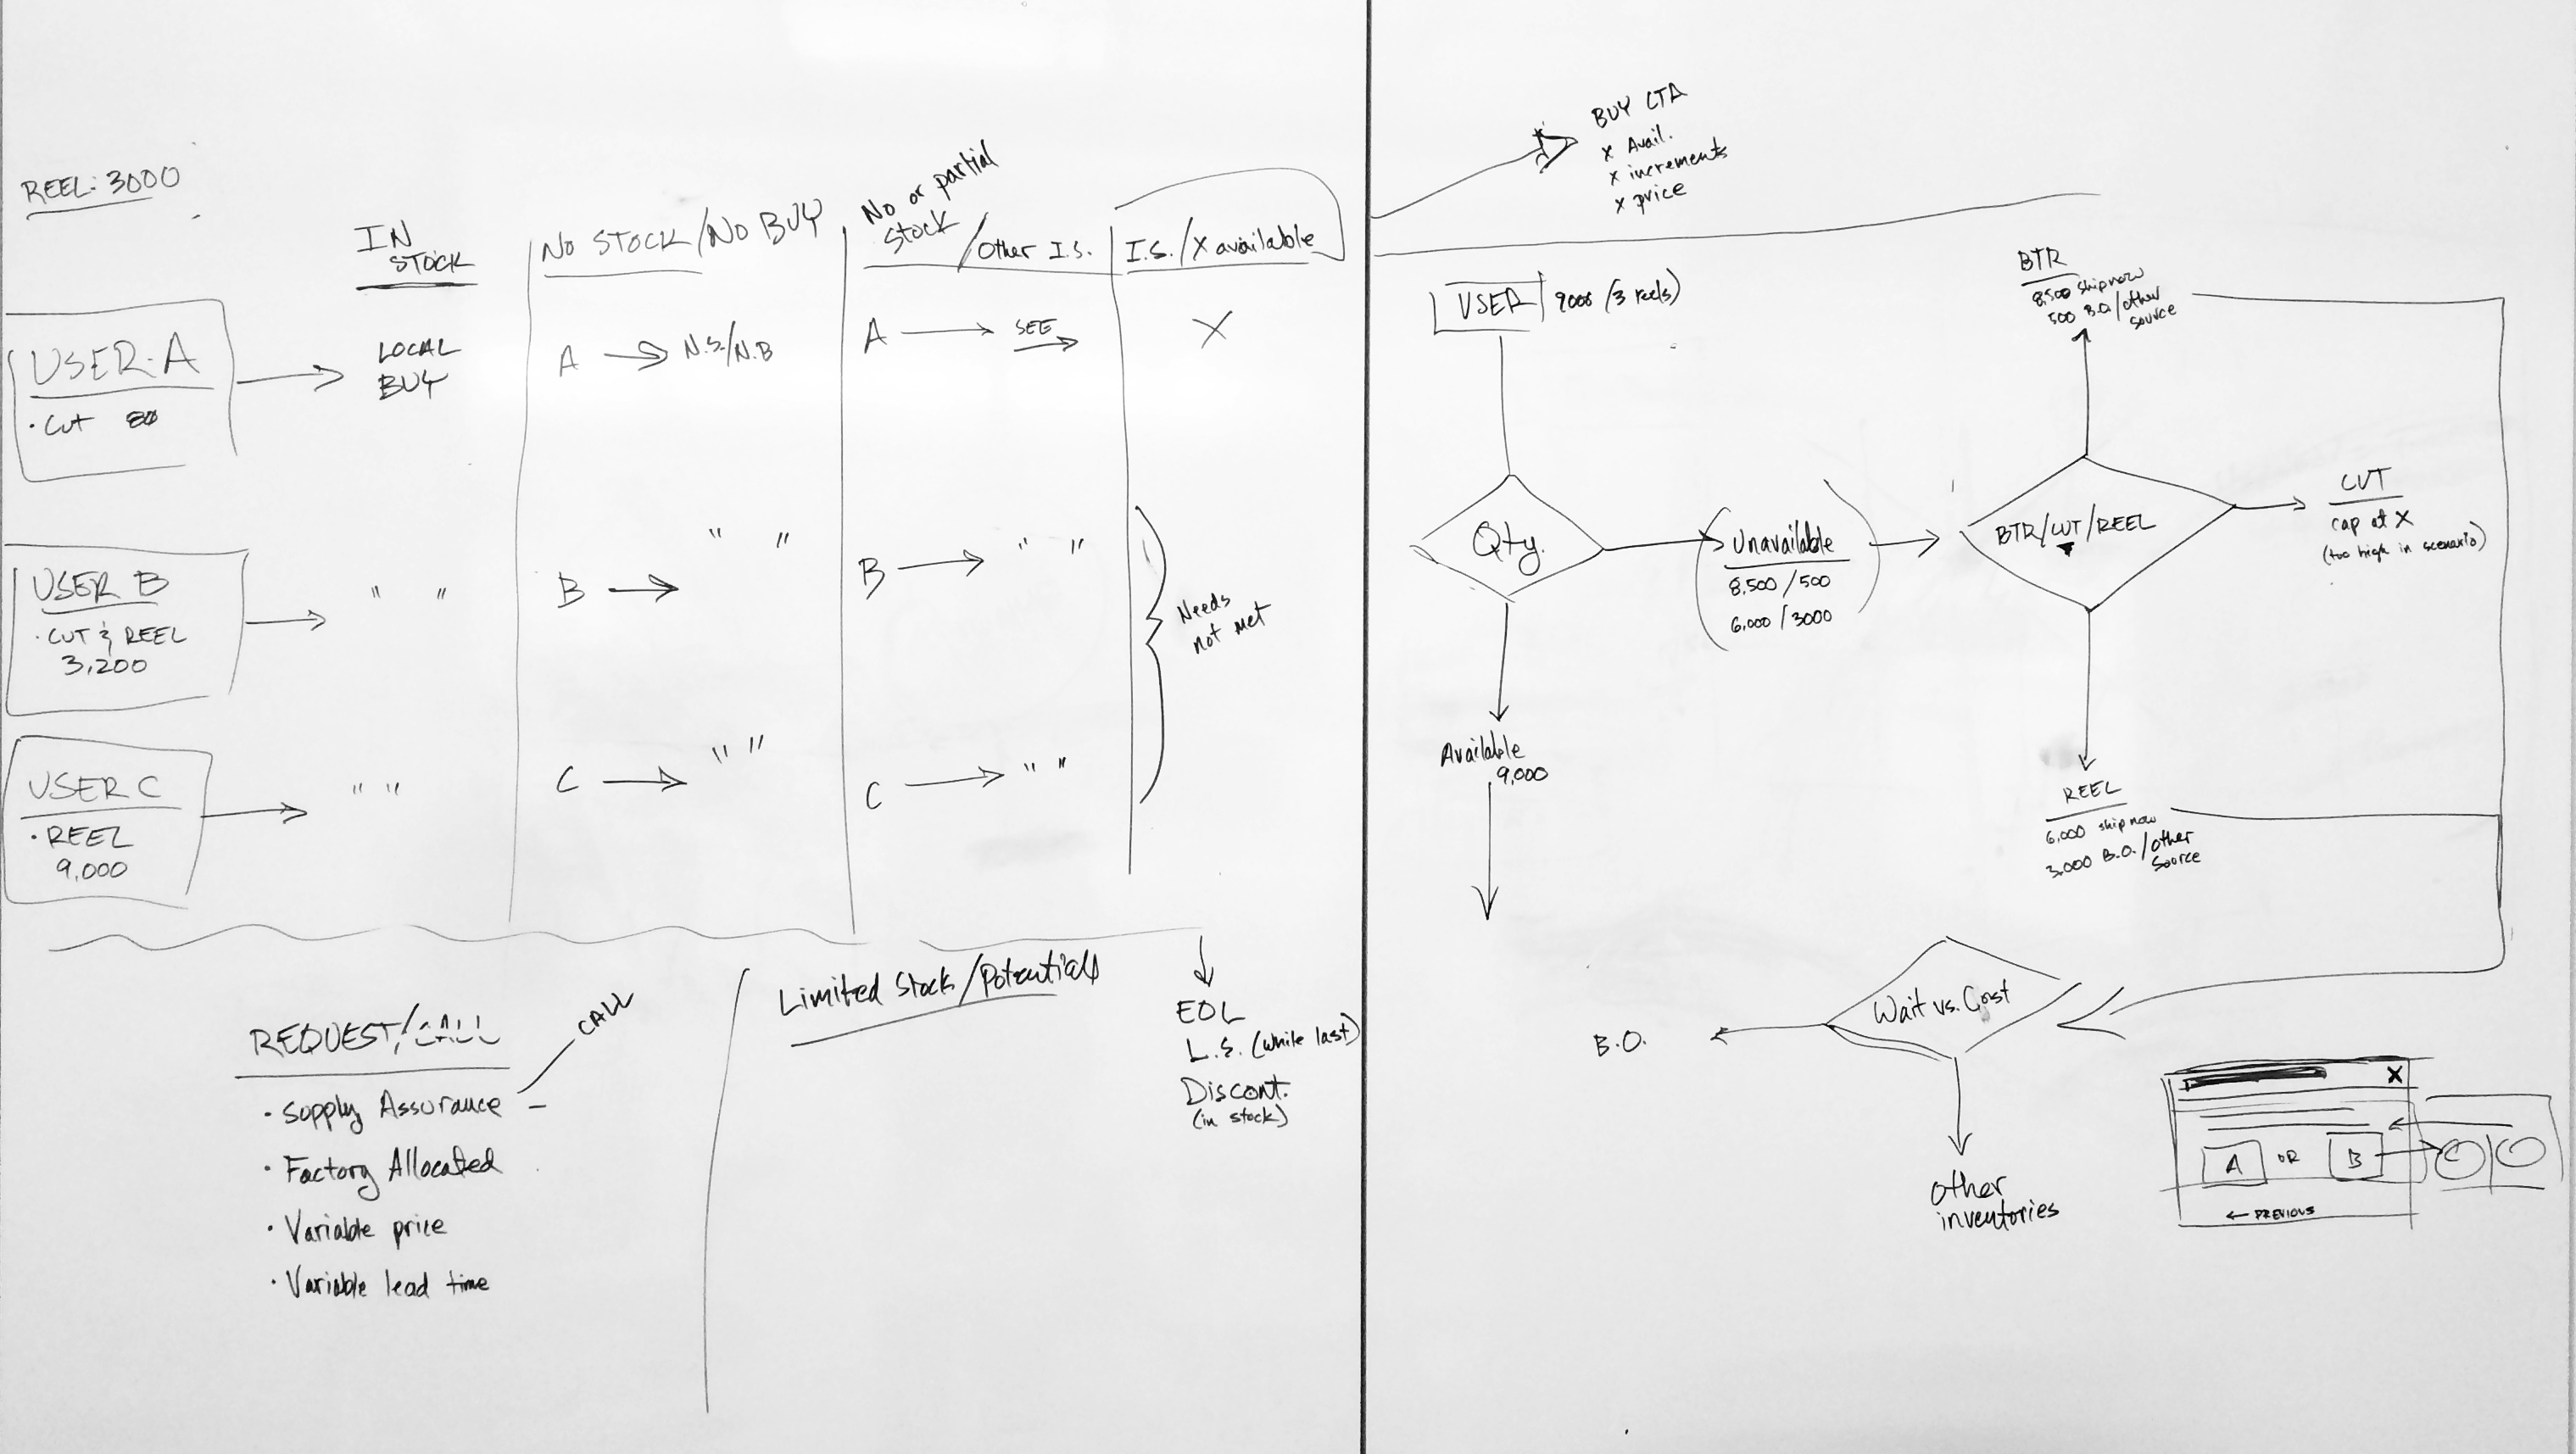 REEL: 3000
IN
STOCK
NO STOCK/NO BUY
No or partial
Stock
/Other I.S.
I.S./X available
USER A
· Cut
LOCAL
BUY
A → N.S./N.B
A → SEE
X
USER B
· CUT & REEL
3,200
" "
B → " "
B → " "
Needs
not met
USER C
· REEL
9,000
" "
C → " "
C → " "
REQUEST/CALL
CALL
· Supply Assurance –
· Factory Allocated
· Variable price
· Variable lead time
Limited Stock/Potentials
EOL
L.S. (while last)
Discont.
(in stock)
BUY CTA
x Avail.
x increments
x price
USER
9000 (3 reels)
Qty.
Unavailable
8,500/500
6,000/3000
Available
9,000
BTR/CUT/REEL
BTR
8,500 ship now
500 B.O./other
source
CUT
cap at X
(too high in scenario)
REEL
6,000 ship now
3,000 B.O./other
source
Wait vs. Cost
B.O.
Other
inventories
X
A OR B
← PREVIOUS